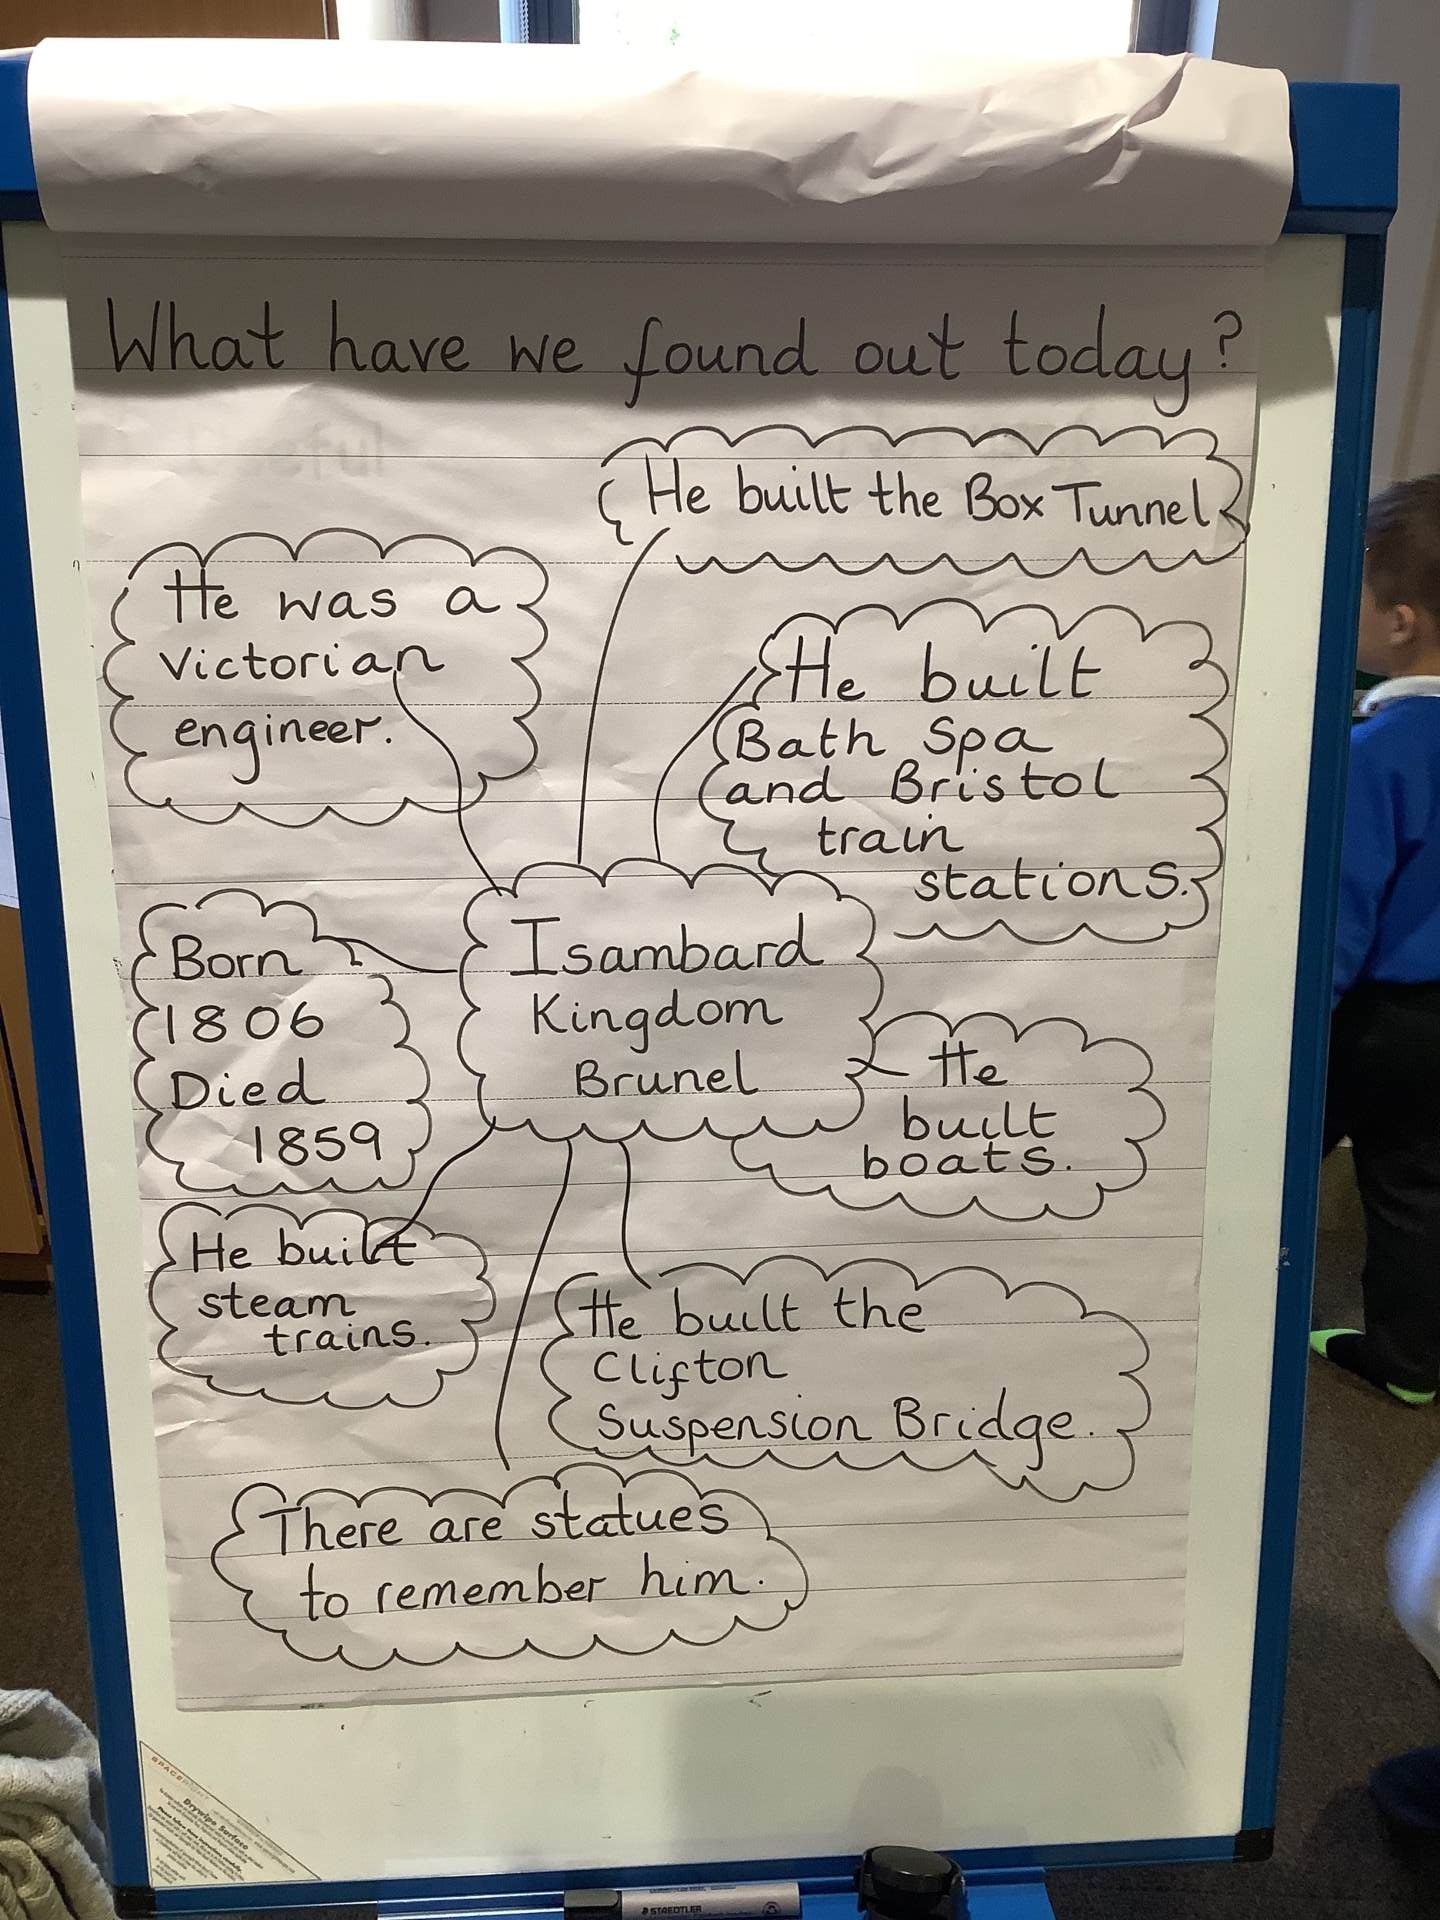 What have we found out today?
He built the Box Tunnel
He was a
Victorian
engineer.
He built
Bath Spa
and Bristol
train
stations.
Born
1806
Died
1859
Isambard
Kingdom
Brunel
He
built
boats.
He built
steam
trains.
He built the
Clifton
Suspension Bridge.
There are statues
to remember him.
SPACERIGHT
Drywipe Surface
STAEDTLER